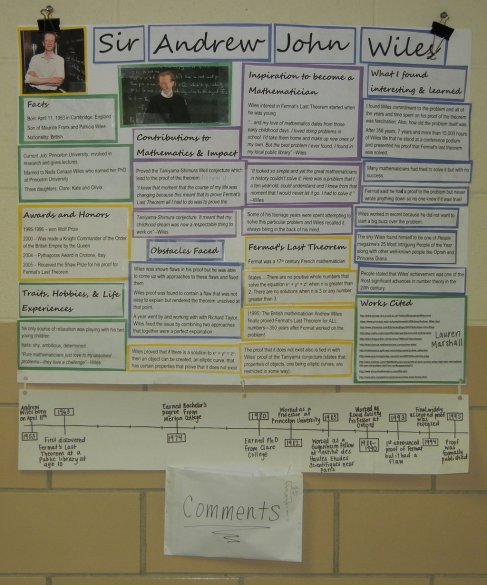 Sir Andrew John Wiles
Facts
Born April 11, 1953 in Cambridge, England
Son of Maurice Frank and Patricia Wiles
Nationality: British
Current job: Princeton University, involved in
research and gives lectures.
Married to Nada Canaan Wiles who earned her PhD
at Princeton University
Three daughters, Clare, Kate and Olivia
Awards and Honors
1995-1996 – won Wolf Prize
2000 – Was made a Knight Commander of the Order
of the British Empire by the Queen
2004 – Pythagoras Award in Crotone, Italy
2005 – Received the Shaw Prize for his proof of
Fermat's Last Theorem
Traits, Hobbies, & Life
Experiences
his only source of relaxation was playing with his two
young children
traits: shy, ambitious, determined
"Pure mathematicians just love to try unsolved
problems—they love a challenge" –Wiles
Contributions to
Mathematics & Impact
Proved the Taniyama-Shimura Weil conjecture which
lead to the proof of the
"It meant that moment that the course of my life was
changing because this meant that to prove Fermat's
Last Theorem all I had to do was to prove the
Taniyama-Shimura conjecture. It meant that my
childhood dream was now a respectable thing to
work on" –Wiles
Obstacles Faced
Wiles was shown flaws in his proof but he was able
to come up with approaches to these flaws and fixed
them
Wiles proof was found to contain a flaw that was not
easy to explain but rendered the theorem unsolved at
that point.
A year went by and working with with Richard Taylor,
Wiles fixed the issue by combining two approaches
that together were a perfect explanation
Wiles proved that if there is a solution to xⁿ + yⁿ = zⁿ
then an object can be created, an elliptic curve, that
has certain properties that prove that it does not exist
Inspiration to become a
Mathematician
Wiles interest in Fermat's Last Theorem started when
he was young
"...and my love of mathematics dates from those
early childhood days. I loved doing problems in
school. I'd take them home and make up new ones of
my own. But the best problem I ever found, I found in
my local public library" –Wiles
"It looked so simple and yet the great mathematicians
in history couldn't solve it. Here was a problem that I,
a ten year old, could understand and I knew from that
moment that I would never let it go. I had to solve it."
–Wiles
Some of his teenage years were spent attempting to
solve this particular problem and Wiles recalled it
always being in the back of his mind.
Fermat's Last Theorem
Fermat was a 17th century French mathematician
States… There are no positive whole numbers that
solve the equation xⁿ + yⁿ = zⁿ when n is greater than
2. There are no solutions when n is 3 or any number
greater than 3
(1995) The British mathematician Andrew Wiles
finally proved Fermat's Last Theorem for ALL
numbers—350 years after Fermat worked on the
problem!
The proof that it does not exist also is tied in with
Wiles' proof of the Taniyama conjecture (states that
properties of objects, one being elliptic curves, are
restricted in some way).
What I found
interesting & learned
I found Wiles commitment to the problem and all of
the years and time spent on his proof of the theorem
was fascinating. Also, how old the problem itself was.
After 358 years, 7 years and more than 15,000 hours
of Wiles life that he stood at a conference podium
and presented his proof that Fermat's last theorem
was solved.
Many mathematicians had tried to solve it but with no
success.
Fermat said he had a proof to the problem but never
wrote anything down so no one knew if it was true!
Wiles worked in secret because he did not want to
start a big buzz over the problem.
The shy Wiles found himself to be one of People
magazine's 25 Most Intriguing People of the Year
along with other well-known people like Oprah and
Princess Diana
People stated that Wiles' achievement was one of the
most significant advances in number theory in the
20th century.
Works Cited
Lauren
Marshall
Andrew
Wiles born
on April 11th
1953
1963
First discovered
Fermat's Last
Theorem at a
Public Library at
age 10
Earned Bachelor's
Degree from
Merton College
1974
1980
Earned PhD
From Clare
College
Worked as a
Professor at
Princeton University
1982
1985
Worked as a
Guggenheim fellow
at Institut des
Hautes Études
Scientifiques near
Paris
Professor at
Oxford
1988-
1990
1993
1st announced
proof of Fermat
but it had a
flaw
1994
1995
Proof
was
formally
published
Comments